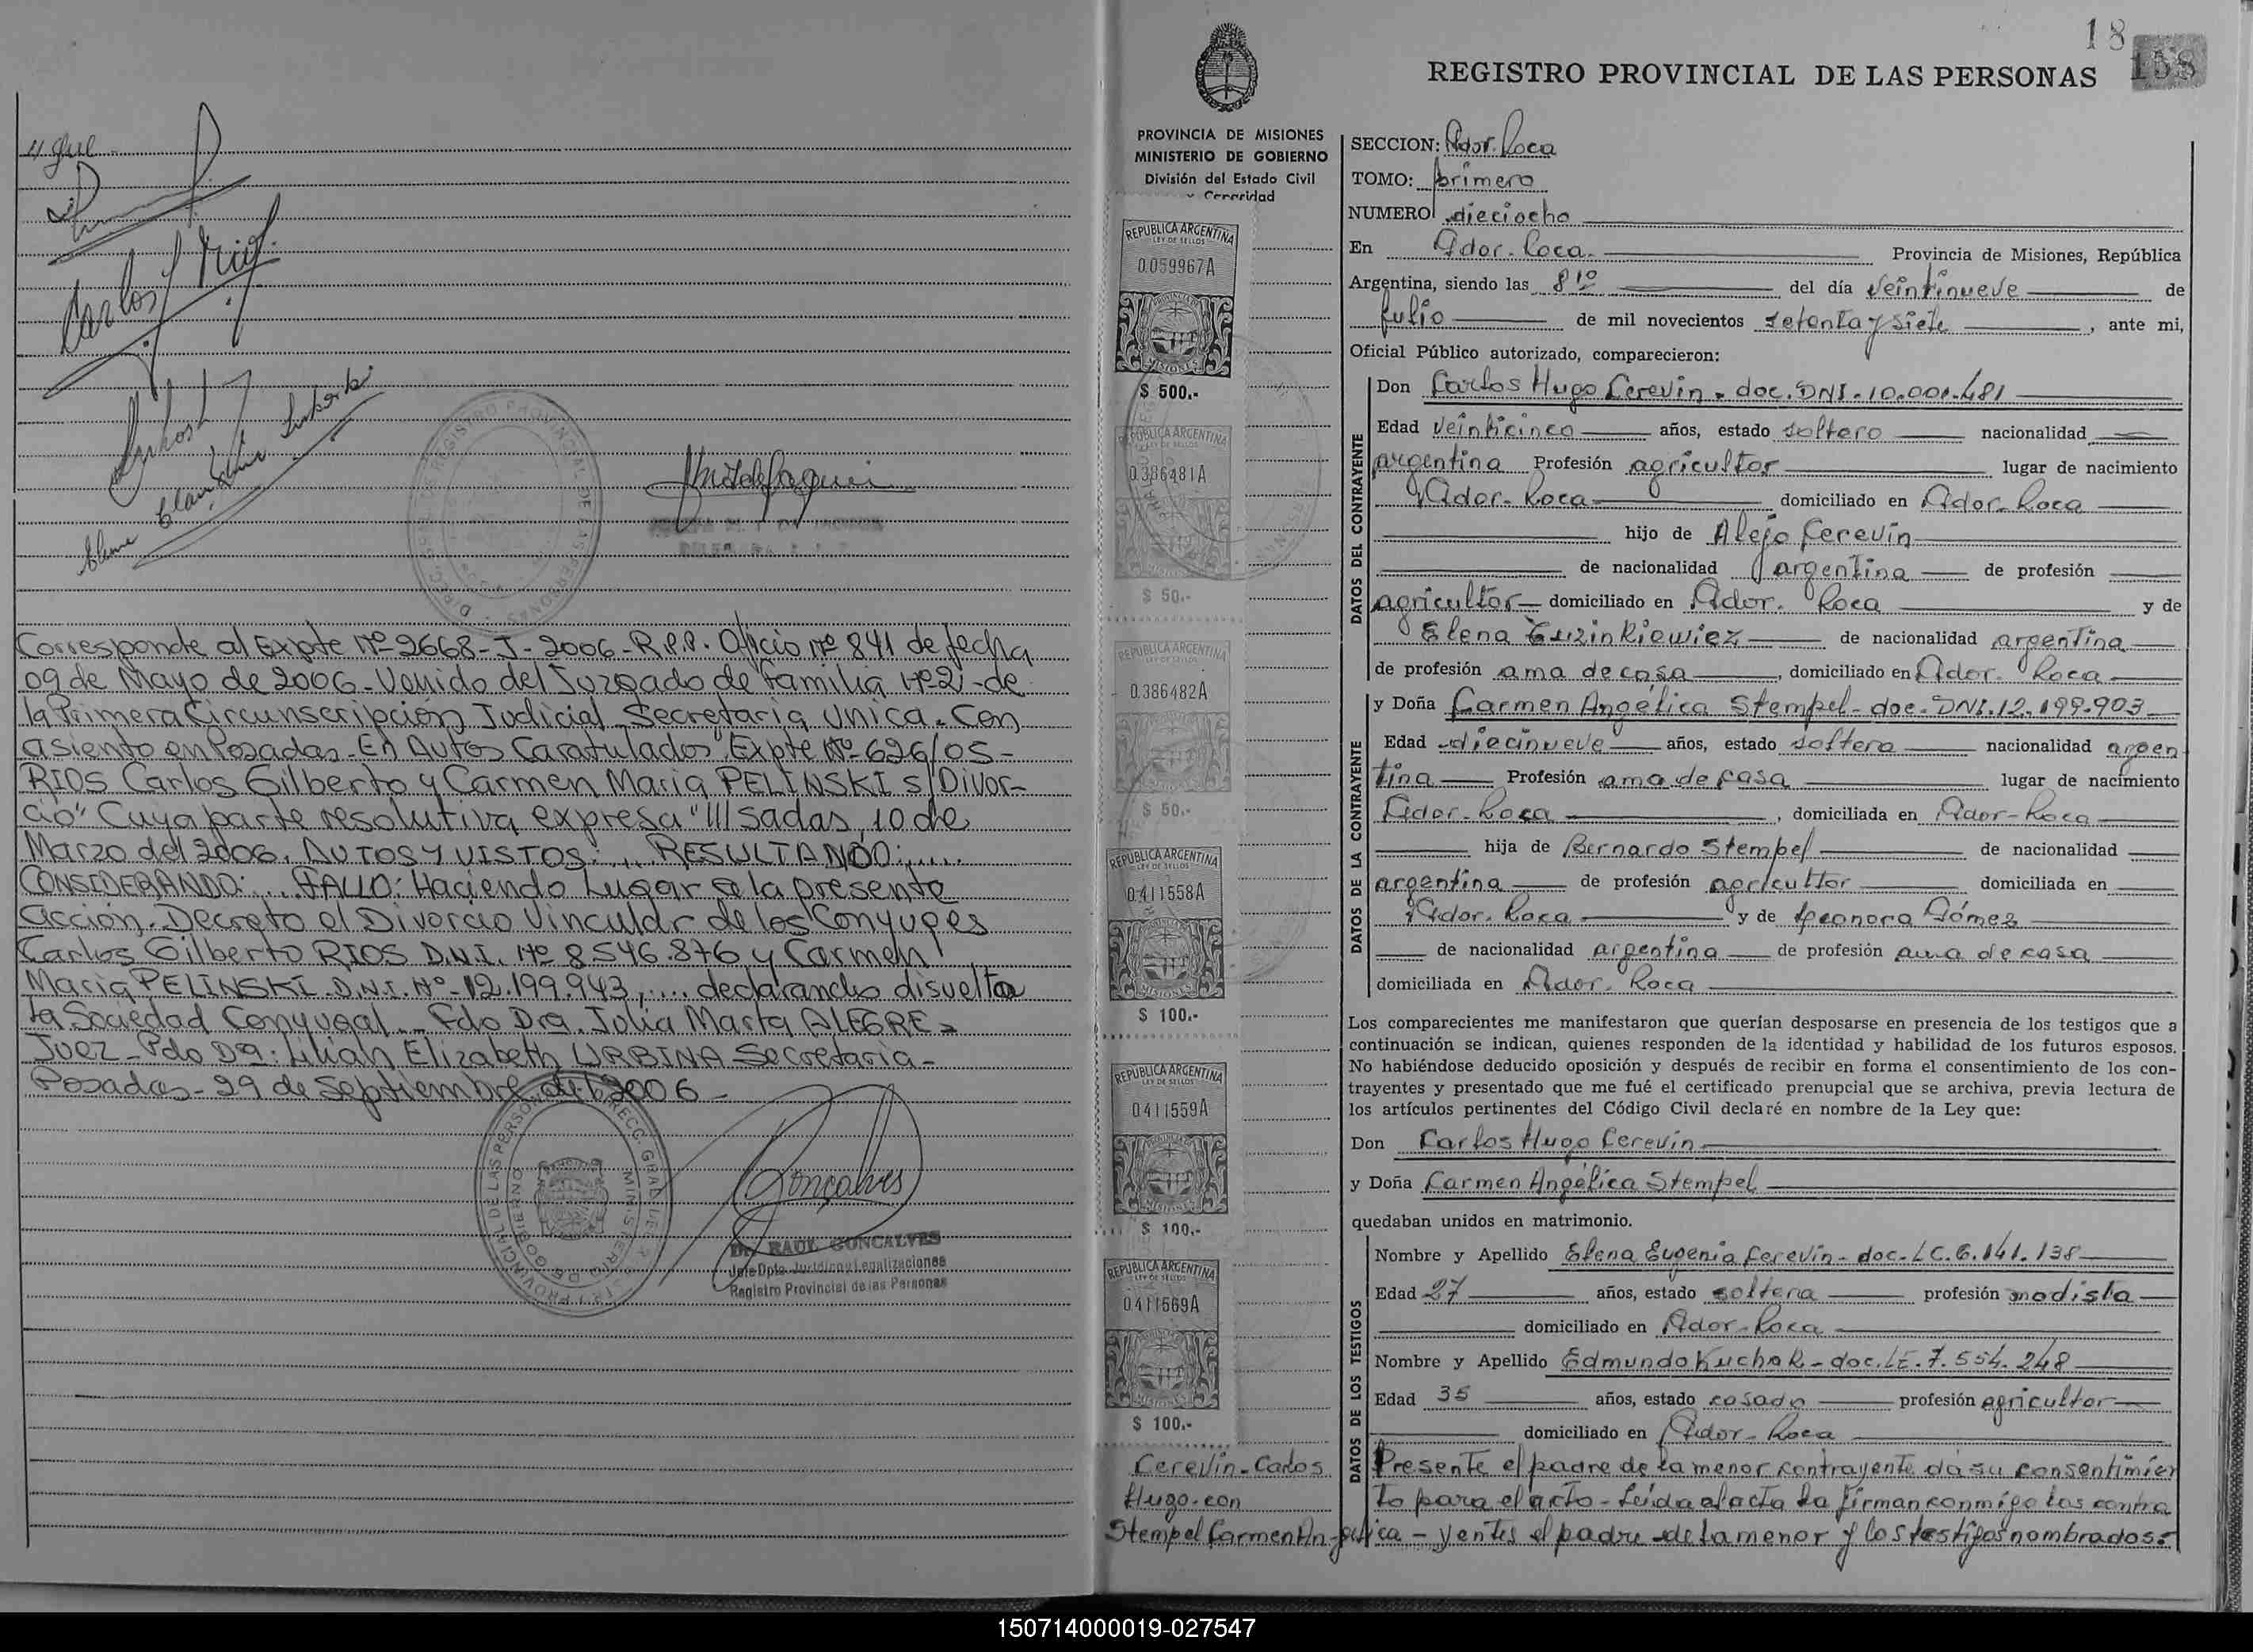 Corresponde al Expte Nº 2668-J-2006-R.P.P. Oficio Nº 841 de fecha
09 de Mayo de 2006-Venido del Juzgado de Familia Nº2-de
la Primera Circunscripción Judicial-Secretaria Unica. Con
asiento en Posadas-En Autos Caratulados "Expte Nº 626/05-
RIOS Carlos Gilberto y Carmen Maria PELINSKI s/Divor-
cio" Cuya parte resolutiva expresa "///sadas, 10 de
Marzo del 2006. AUTOS Y VISTOS:... RESULTANDO:.....
CONSIDERANDO:... FALLO: Haciendo Lugar a la presente
acción. Decreto el Divorcio Vincular de los Conyuges
Carlos Gilberto RIOS D.N.I. Nº 8.546.876 y Carmen
Maria PELINSKI D.N.I. Nº-12.199.943,.... declarando disuelta
la Sociedad Conyugal... Fdo Dra. Julia Marta ALEGRE-
Juez-Fdo Dra: Lilian Elizabeth URBINA-Secretaria-
Posadas-29 de Septiembre del 2006-
Goncalves
Dr. RAUL GONCALVES
Jefe Dpto. Jurídico y Legalizaciones
Registro Provincial de las Personas
18
158
REGISTRO PROVINCIAL DE LAS PERSONAS
PROVINCIA DE MISIONES
MINISTERIO DE GOBIERNO
División del Estado Civil
y Capacidad
REPUBLICA ARGENTINA
LEY DE SELLOS
0.059967A
MISIONES
$ 500.-
REPUBLICA ARGENTINA
0.386481A
$ 50.-
REPUBLICA ARGENTINA
0.386482A
$ 50.-
REPUBLICA ARGENTINA
LEY DE SELLOS
0411558A
MISIONES
$ 100.-
REPUBLICA ARGENTINA
LEY DE SELLOS
0411559A
MISIONES
$ 100.-
REPUBLICA ARGENTINA
LEY DE SELLOS
0411569A
MISIONES
$ 100.-
Cerevin-Carlos
Hugo-con
Stempel Carmen An-gelica-
SECCION: Gdor. Roca
TOMO: primero
NUMERO dieciocho
En Gdor. Roca. Provincia de Misiones, República
Argentina, siendo las 8 10 del día veintinueve de
Julio de mil novecientos setenta y siete, ante mi,
Oficial Público autorizado, comparecieron:
DATOS DEL CONTRAYENTE
Don Carlos Hugo Cerevin. doc. DNI. 10.001.481
Edad veinticinco años, estado soltero nacionalidad
argentina Profesión agricultor lugar de nacimiento
Gdor. Roca domiciliado en Gdor. Roca
hijo de Alejo Cerevin
de nacionalidad argentina de profesión
agricultor domiciliado en Gdor. Roca y de
Elena Guzinkiewiez de nacionalidad argentina
de profesión ama de casa, domiciliado en Gdor. Roca
DATOS DE LA CONTRAYENTE
y Doña Carmen Angélica Stempel-doc. DNI. 12.199.903
Edad diecinueve años, estado soltera nacionalidad argen
tina Profesión ama de casa lugar de nacimiento
Gdor. Roca, domiciliada en Gdor-Roca
hija de Bernardo Stempel de nacionalidad
argentina de profesión agricultor domiciliada en
Gdor. Roca y de Leonora Gómez
de nacionalidad argentina de profesión ama de casa
domiciliada en Gdor. Roca
Los comparecientes me manifestaron que querían desposarse en presencia de los testigos que a
continuación se indican, quienes responden de la identidad y habilidad de los futuros esposos.
No habiéndose deducido oposición y después de recibir en forma el consentimiento de los con-
trayentes y presentado que me fué el certificado prenupcial que se archiva, previa lectura de
los artículos pertinentes del Código Civil declaré en nombre de la Ley que:
Don Carlos Hugo Cerevin
y Doña Carmen Angélica Stempel
quedaban unidos en matrimonio.
DATOS DE LOS TESTIGOS
Nombre y Apellido Elena Eugenia Cerevin-doc. LC. 6.141.138
Edad 27 años, estado soltera profesión modista
domiciliado en Gdor-Roca
Nombre y Apellido Edmundo Kuchak-doc. LE. 7.554.248
Edad 35 años, estado casado profesión agricultor
domiciliado en Gdor-Roca
Presente el padre de la menor contrayente da su consentimien
to para el acto-Leida el acta la firman conmigo los contra
yentes el padre de la menor y los testigos nombrados.-
150714000019-027547